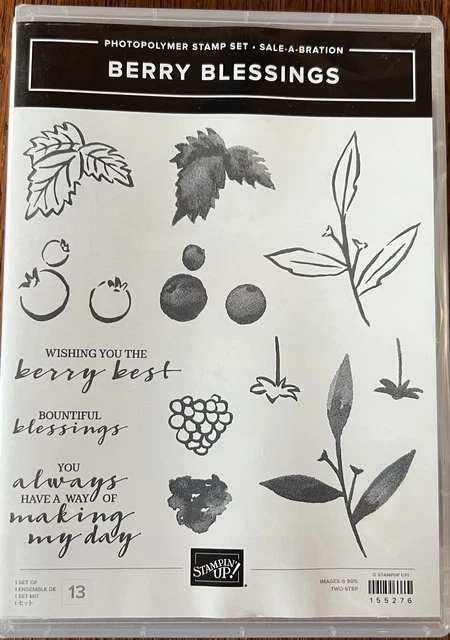 PHOTOPOLYMER STAMP SET • SALE-A-BRATION
BERRY BLESSINGS
WISHING YOU THE
berry best
BOUNTIFUL
blessings
YOU
always
HAVE A WAY OF
making
my day
STAMPIN' UP!®
1 SET OF
1 ENSEMBLE DE
1 SET MIT
1セット
13
IMAGES @ 90%
TWO-STEP
© STAMPIN' UP!
155276